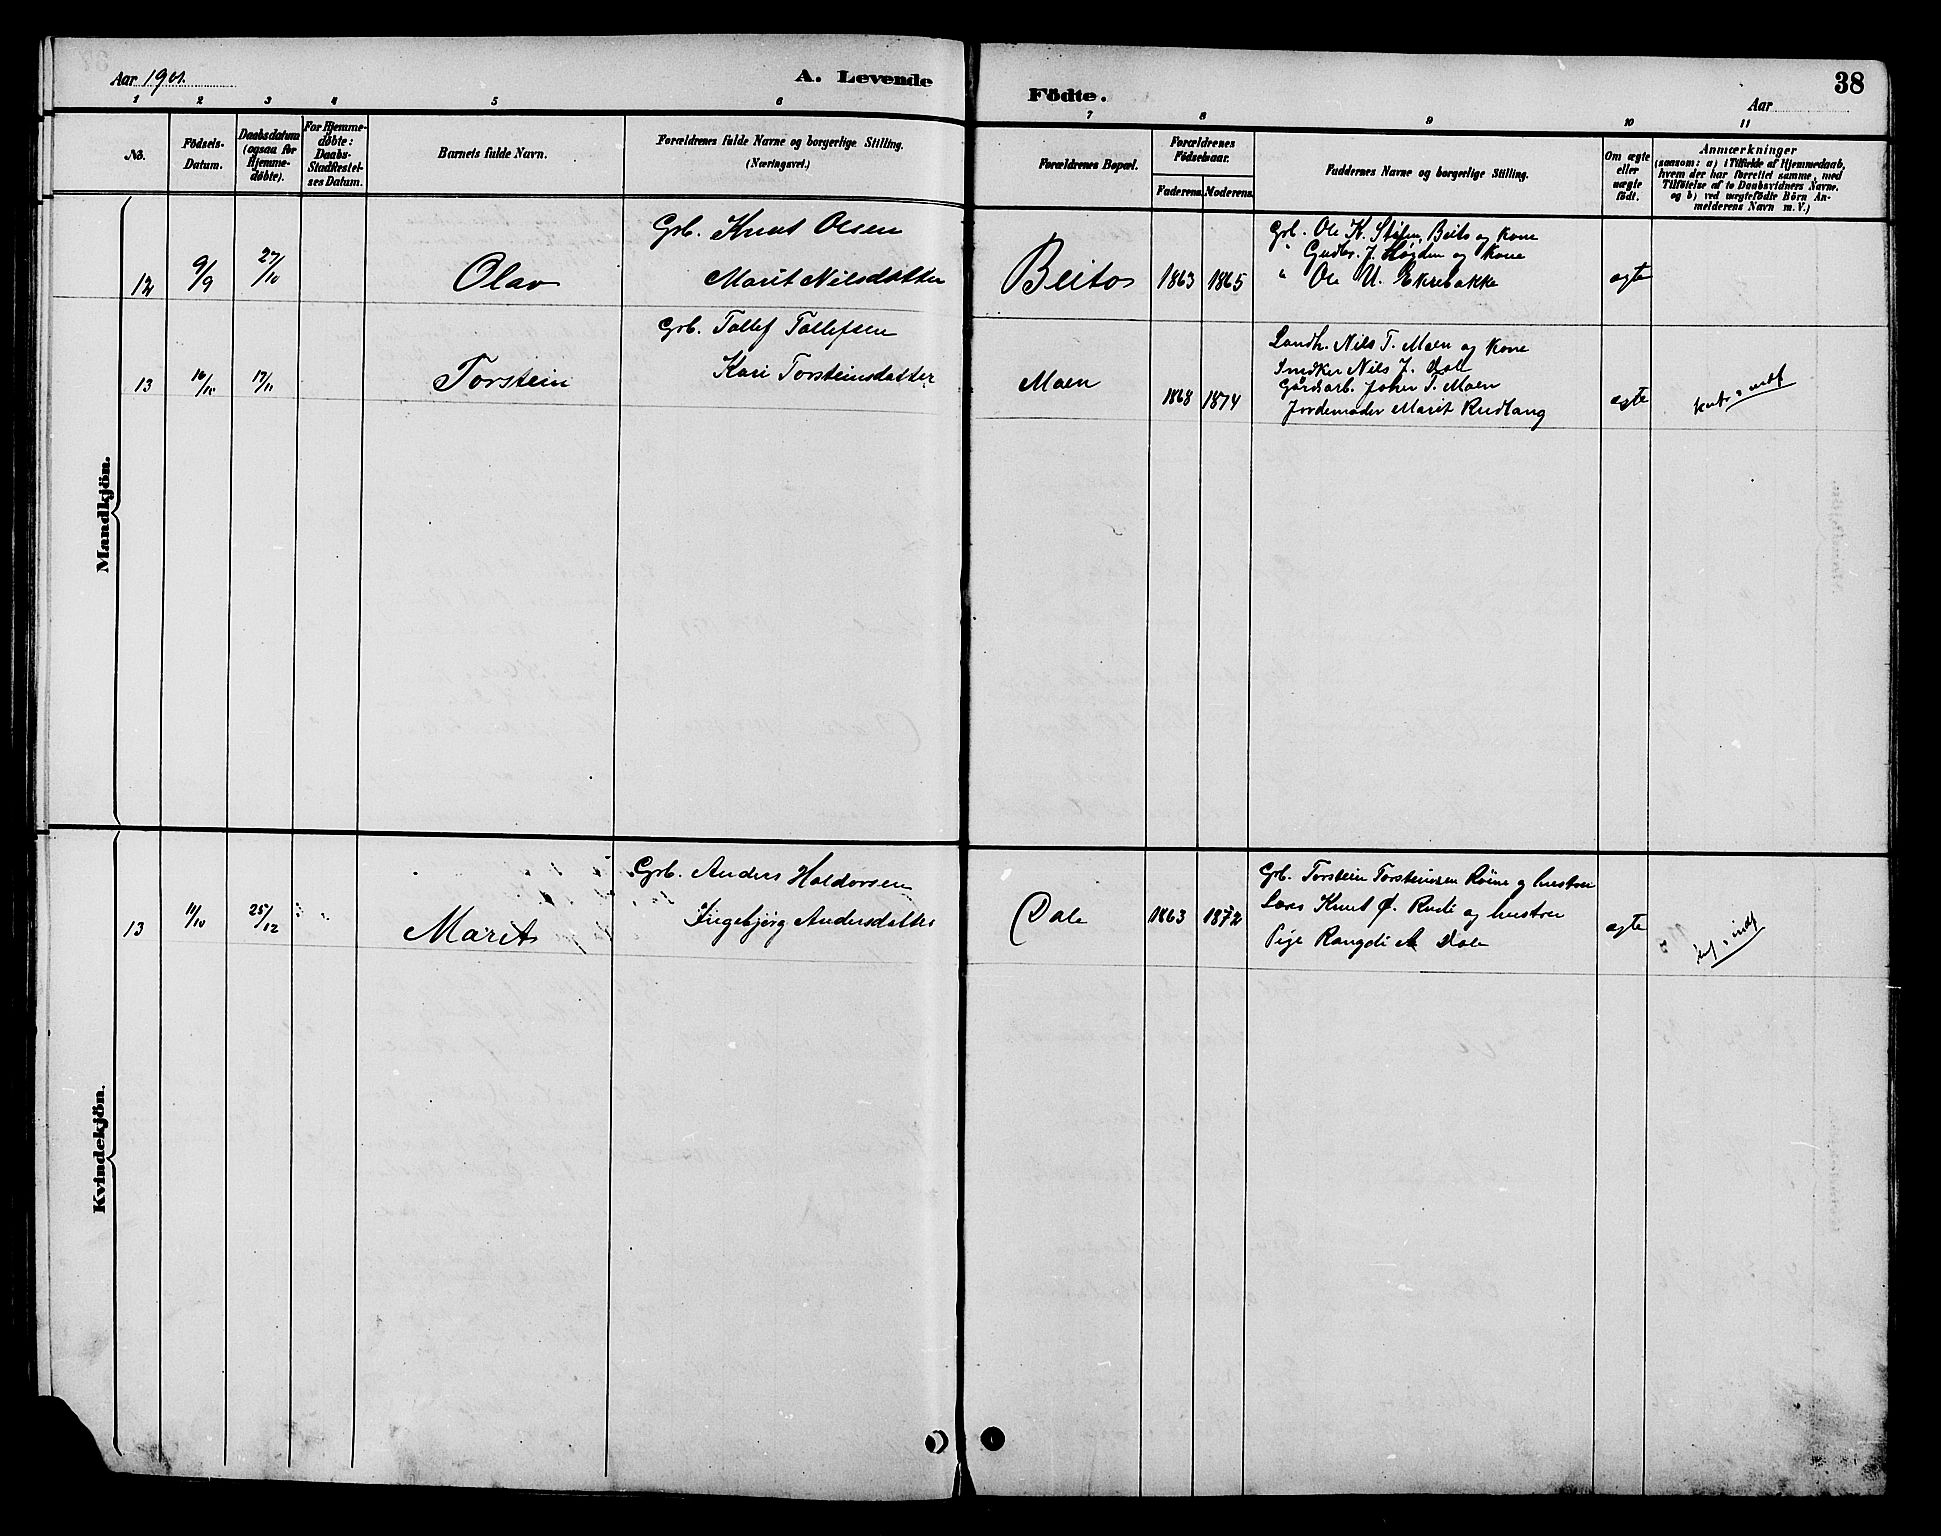 Aar 1901.
A. Levende
Födte.
38
Aar
1 2 3 4 5 6 7 8 9 10 11
No.
Födsels-
Datum.
Daabsdatum
(ogsaa for
Hjemme-
døbte).
For Hjemme-
døbte:
Daabs-
Stadfæstel-
ses Datum.
Barnets fulde Navn.
Forældrenes fulde Navne og borgerlige Stilling.
(Næringsvei.)
Forældrenes Bopæl.
Forældrenes
Födselsaar.
Faderens.
Moderens.
Faddernes Navne og borgerlige Stilling.
Om ægte
eller
uægte
født.
Anmærkninger
(saasom: a) i Tilfælde af Hjemmedaab,
hvem der har forrettet samme, med
Tilföielse af to Daabsvidners Navne.
og b) ved uægtefødte Börn An-
melderens Navn m. V.)
Mandkjön.
12 9/9 27/10 Olav
Grb. Knut Olsen
Marit Nilsdatter
Beito 1863 1865
Grb. Ole K. Stölen, Beito og kone
" Gudbr. J. Högden og kone
" Ole U. Ekrebakke
ægte
13 16/10 17/11 Torstein
Grb. Tollef Tollefsen
Kari Torsteinsdatter
Moen 1868 1874
Landh. Nils T. Moen og kone
Snedker Nils J. Dale
Gårdsarb. Johen T. Moen
Jordemoder Marit Rudlang
ægte
Kvindekjön.
13 11/10 25/12 Marit
Grb. Anders Haldorsen
Ingebjørg Andersdatter
Dale 1863 1872
Grb. Torstein Torsteinsen Röine og hustru
Knut Ø. Rudi og hustru
Pige Rangdi A Dale
ægte